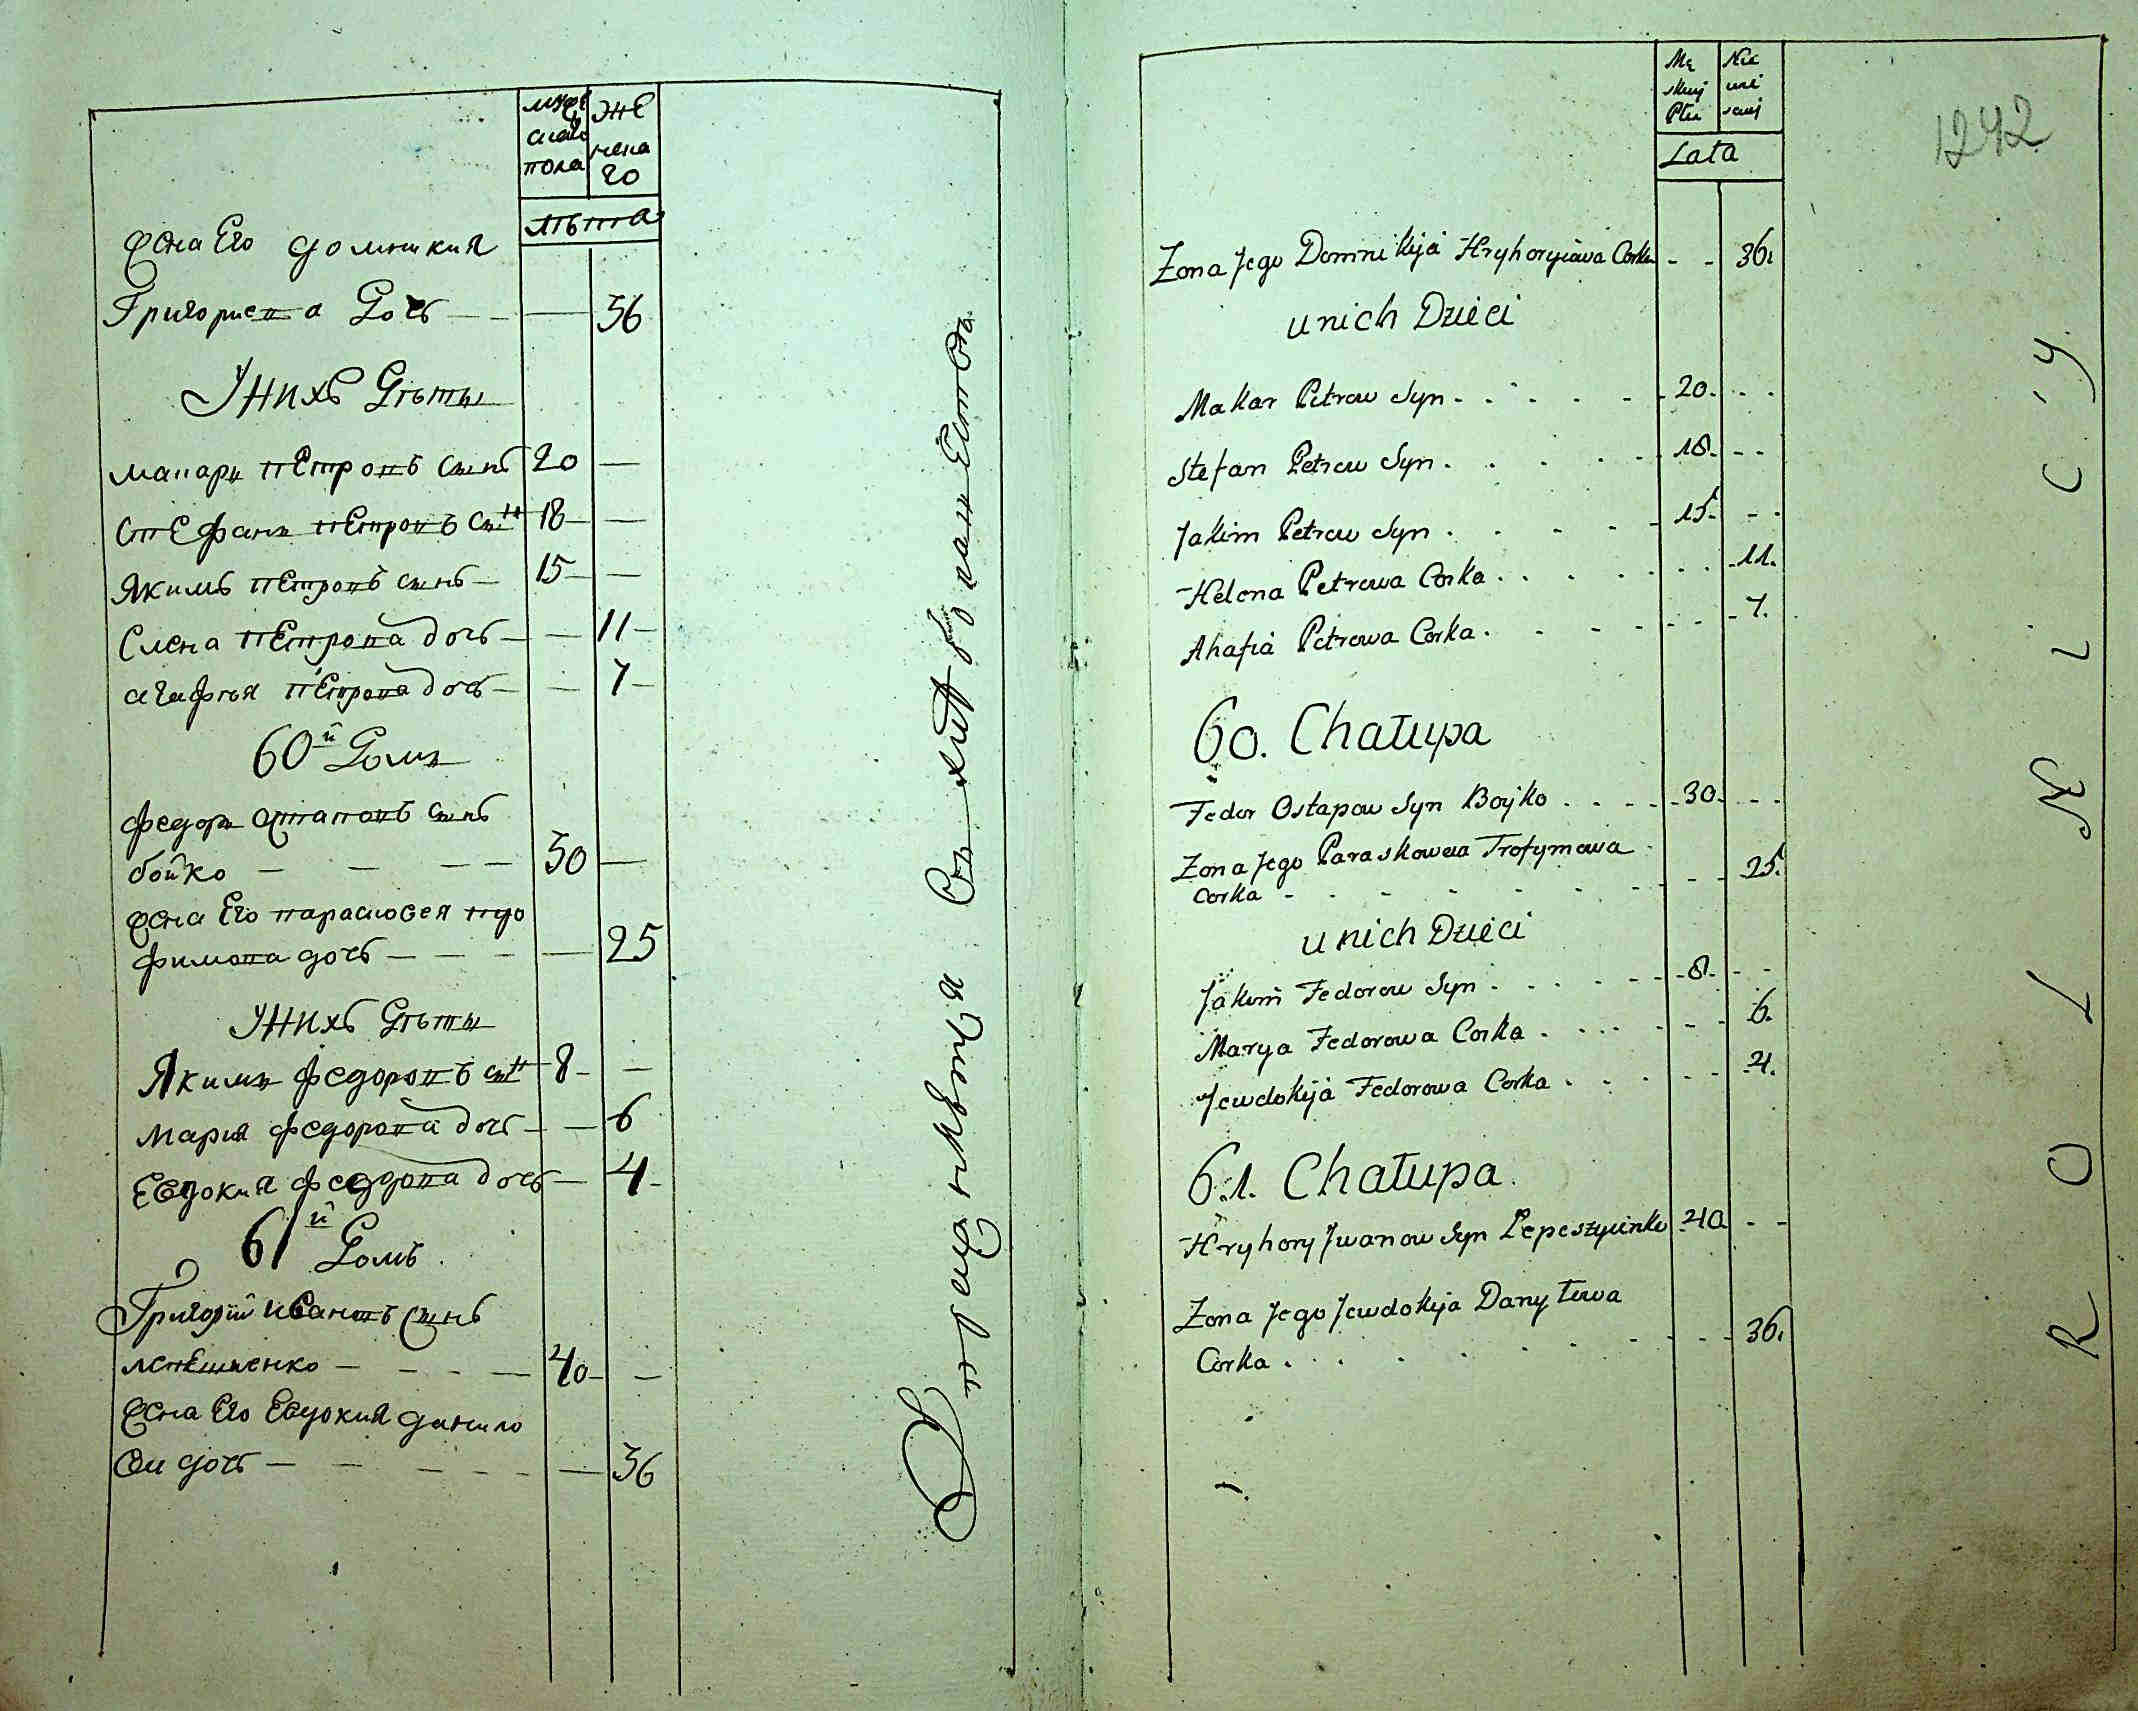 мужескаго пола
женскаго
лѣта
жена Его домникия
Григориева Дочь — — — 36
У нихъ Дѣты
макаръ пЕтровъ сынъ 20 —
стЕфанъ пЕтровъ сын 18 — —
Якимъ пЕтровъ сынъ — 15 — —
Елена пЕтрова дочь — — 11 —
агафия пЕтрова дочь — — 7 —
60й Домъ
федоръ остаповъ сынъ
бойко — — — — 30 —
жена Его парасковея тро
фимова дочь — — — — 25
У нихъ Дѣты
Якимъ федоровъ сын 8 — —
Мария федорова дочь — — 6
Евдокия федорова дочь — 4 —
61й Домъ
Григорий иванов сынъ
лепешченко — — — — 40 — —
жена Его Евдокия данило
ва дочь — — — — — 36
Mę skiej Płci
Nie wie sciej
Lata
1242
Zona Jego Domnikija Hryhoryiawa Corka - - 36.
unich Dzieci
Makar Petrow Syn - . . . - - 20. - . .
Stefan Petrow Syn . . . . - - 18. - - -
Jakim Petrow Syn . . - - - 15. - - .
Helena Petrowa Corka . . . . . . . - 11.
Ahafia Petrowa Corka . . - - - - - - 7.
60. Chałupa
Fedor Ostapow Syn Boyko . . - - - 30. - - -
Zona Jego Paraskowea Trofymowa
Corka - - - - - - - - - 25.
unich Dzieci
Jakim Fedorow Syn . . . . - - 8. - -
Marya Fedorowa Corka . . . . - - - 6.
Jewdokija Fedorowa Corka . . . . - - 4.
61. Chałupa.
Hryhory Jwanow Syn Lepeszyinko 40 - -
Zona Jego Jewdokija Danyłowa
Corka . . . . - - - - - 36.
R O L N I C Y